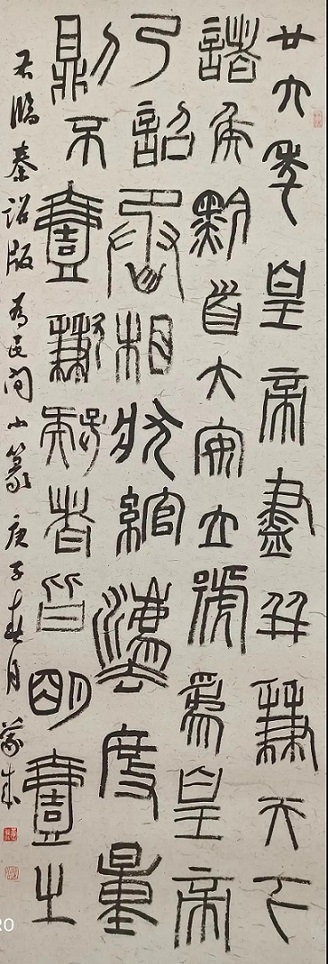 廿六年皇帝盡并兼天下
諸侯黔首大安立號為皇帝
乃詔丞相狀綰灋度量
則不壹歉疑者皆明壹之
右臨秦詔版為民间小篆庚子春月